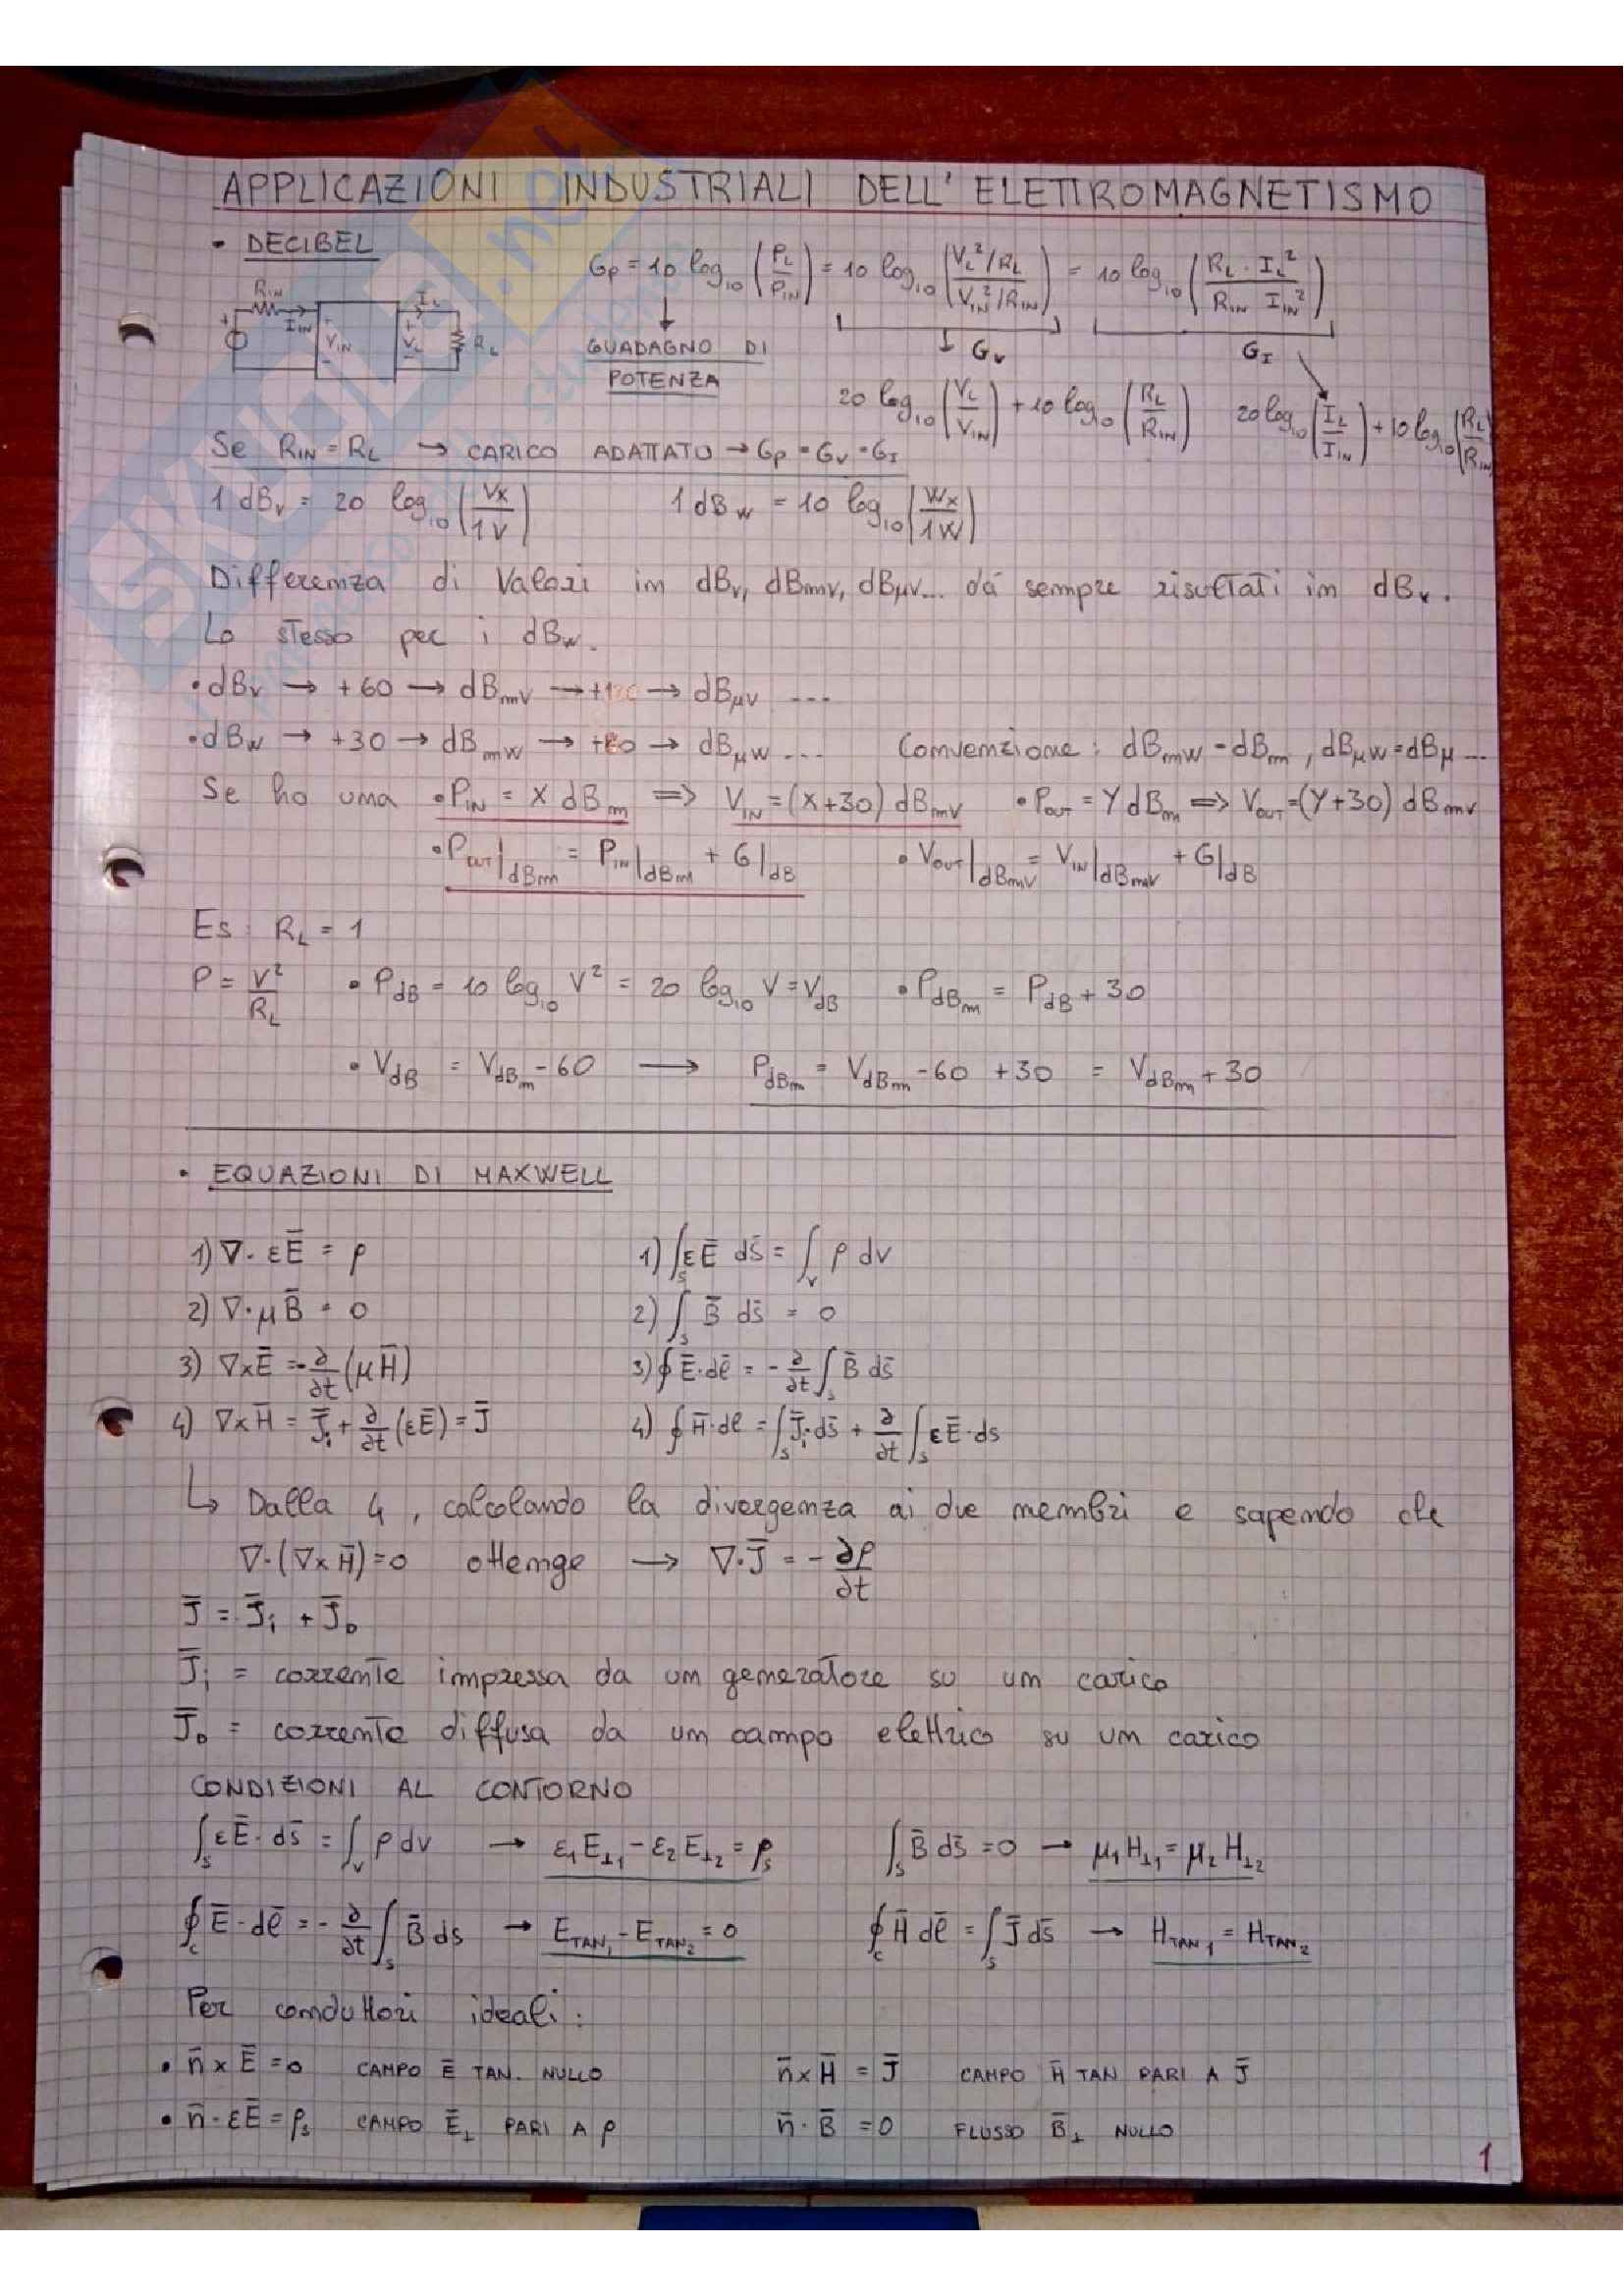 APPLICAZIONI INDUSTRIALI DELL'ELETTROMAGNETISMO
• DECIBEL
G_P = 10 log₁₀ (P_L/P_IN) = 10 log₁₀ ((V_L²/R_L)/(V_IN²/R_IN)) = 10 log₁₀ ((R_L · I_L²)/(R_IN I_IN²))
R_IN I_IN V_IN I_L V_L R_L
GUADAGNO DI POTENZA
↓ G_V G_I
20 log₁₀ (V_L/V_IN) + 10 log₁₀ (R_L/R_IN) 20 log₁₀ (I_L/I_IN) + 10 log₁₀ (R_L/R_IN)
Se R_IN = R_L → CARICO ADATTATO → G_P = G_V = G_I
1 dB_V = 20 log₁₀ (V_X/1V) 1 dB_W = 10 log₁₀ (W_X/1W)
Differenza di Valori in dB_V, dB_mV, dB_μV... dà sempre risultati in dB_V.
Lo stesso per i dB_W.
• dB_V → +60 → dB_mV → +120 → dB_μV ...
• dB_W → +30 → dB_mW → +60 → dB_μW ... Convenzione: dB_mW = dB_m, dB_μW = dB_μ ...
Se ho una • P_IN = X dB_m ⇒ V_IN = (X+30) dB_mV • P_OUT = Y dB_m ⇒ V_OUT = (Y+30) dB_mV
• P_OUT|dBm = P_IN|dBm + G|dB • V_OUT|dBmV = V_IN|dBmV + G|dB
Es: R_L = 1
P = V²/R_L • P_dB = 10 log₁₀ V² = 20 log₁₀ V = V_dB • P_dBm = P_dB + 30
• V_dB = V_dBm - 60 → P_dBm = V_dBm - 60 + 30 = V_dBm + 30
• EQUAZIONI DI MAXWELL
1) ∇· εĒ = ρ 1) ∫_S εĒ ds̄ = ∫_V ρ dv
2) ∇· μB̄ = 0 2) ∫_S B̄ ds̄ = 0
3) ∇×Ē = -∂/∂t (μH̄) 3) ∮ Ē·dℓ̄ = -∂/∂t ∫_S B̄ ds̄
4) ∇×H̄ = J̄_i + ∂/∂t (εĒ) = J̄ 4) ∮ H̄·dℓ = ∫_S J̄_i·ds̄ + ∂/∂t ∫_S εĒ·ds
↳ Dalla 4, calcolando la divergenza ai due membri e sapendo che
∇·(∇×H̄) = 0 ottengo → ∇·J̄ = -∂ρ/∂t
J̄ = J̄_i + J̄_D
J̄_i = corrente impressa da un generatore su un carico
J̄_D = corrente diffusa da un campo elettrico su un carico
CONDIZIONI AL CONTORNO
∫_S εĒ·ds̄ = ∫_V ρ dv → ε₁E_⊥₁ - ε₂E_⊥₂ = ρ_s ∫_S B̄ ds̄ = 0 → μ₁H_⊥₁ = μ₂H_⊥₂
∮_C Ē·dℓ̄ = -∂/∂t ∫_S B̄ ds → E_TAN₁ - E_TAN₂ = 0 ∮_C H̄ dℓ̄ = ∫_S J̄ ds̄ → H_TAN₁ = H_TAN₂
Per conduttori ideali:
• n̄ × Ē = 0 CAMPO Ē TAN. NULLO n̄ × H̄ = J̄ CAMPO H̄ TAN PARI A J̄
• n̄ · εĒ = ρ_s CAMPO Ē_⊥ PARI A ρ n̄ · B̄ = 0 FLUSSO B̄_⊥ NULLO
1